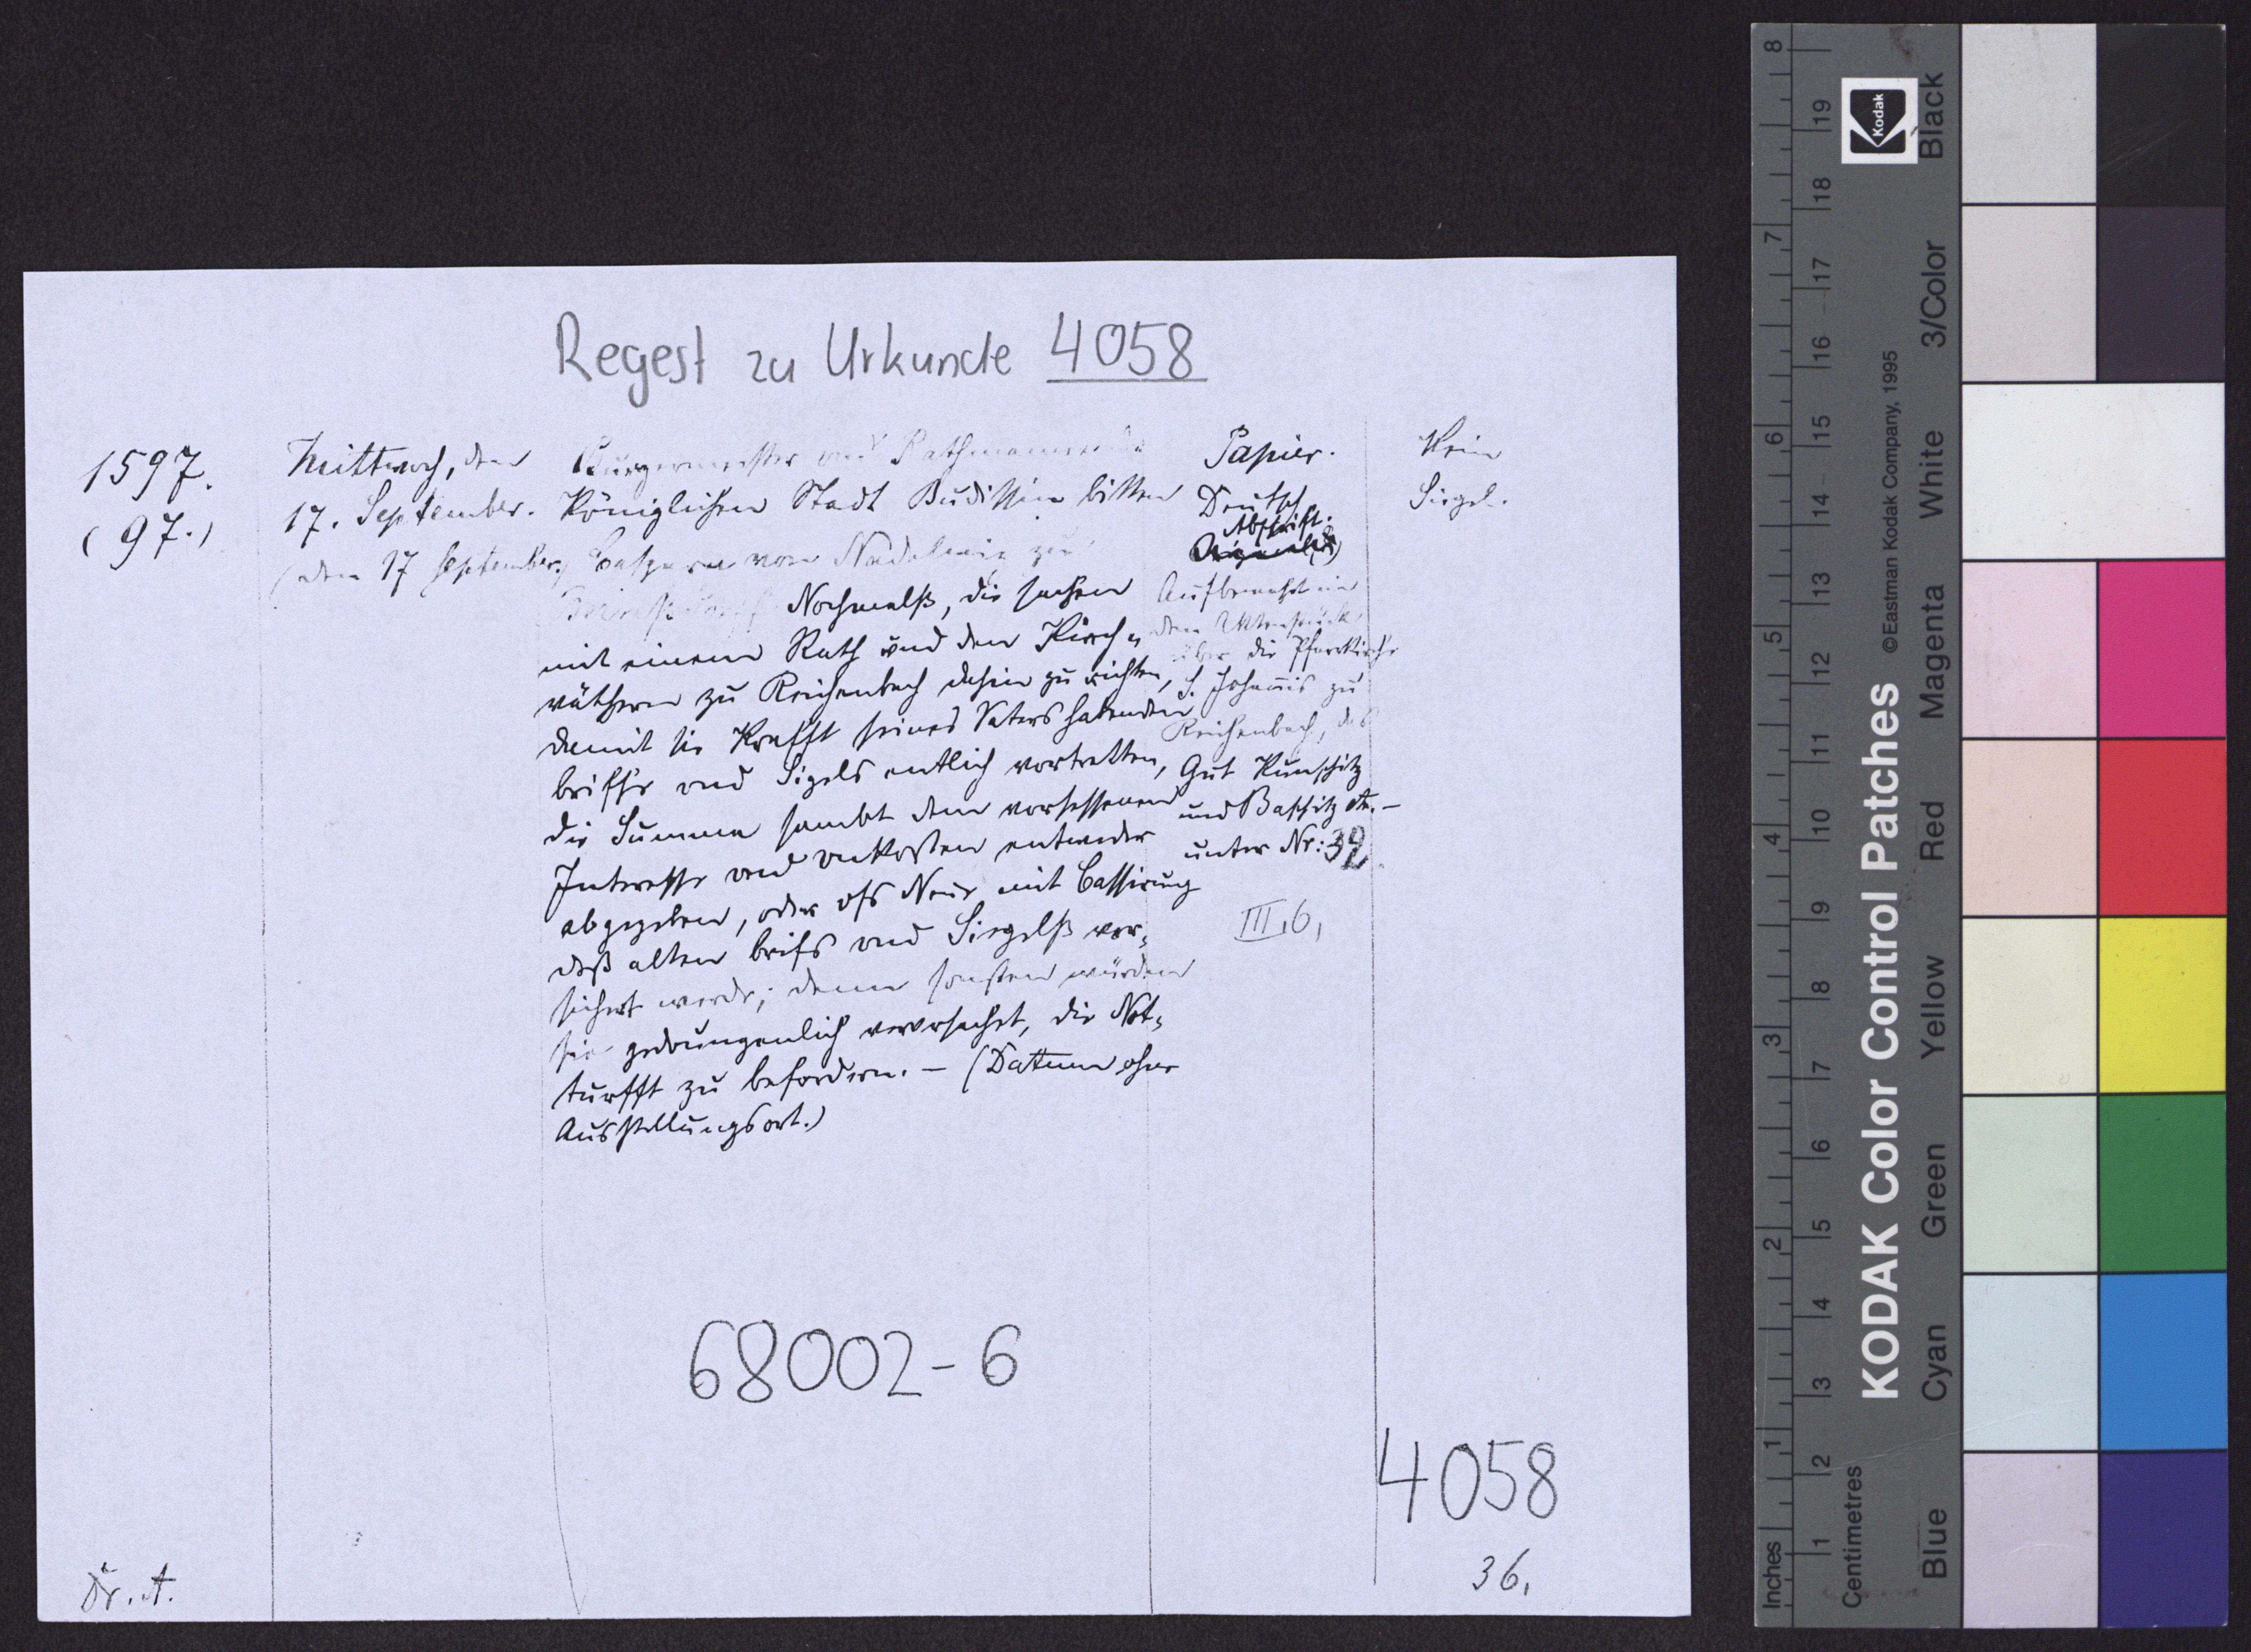 Regest zu Urkunde 4058
1597.
(97.)
Mittwoch, den
17. September.
(den 17 September)
Burgermeister und Rathmanne der
Königlichen Stadt Budissin bitten
Caspern von Nadelwiz zu
Nochmalß, die sachen
mit einem Rath und den Kirch-
väthern zu Reichenbach dahin zu richten,
damit sie Krafft seines Vaters habenden
briffe vnd Sigels entlich vortretten,
die Summa sambt dem vorsessenen
Interesse vnd vnkosten entweder
abgegeben, oder ofs Neue mit Cassirung
deß alten briefs vnd Siegelß vor-
sichert werde; denn sonsten würden
sie gedrungenlich verorsachet, die Not-
turfft zu befordern. – (Datum ohne
Ausstellungsort.)
Papier.
Deutsch.
Abschrift.
Original(?)
Aufbewahrt in
dem Aktenstück
über die Pfarrkirche
S. Johannis zu
Reichenbach, das
Gut Kunschitz
und Baschitz etc. –
unter Nr: 39
III,6,
Kein
Siegel.
68002-6
4058
36,
Dr. A.
Inches 1 2 3 4 5 6 7 8
Centimetres 1 2 3 4 5 6 7 8 9 10 11 12 13 14 15 16 17 18 19
KODAK Color Control Patches ©Eastman Kodak Company, 1995
Kodak
Blue Cyan Green Yellow Red Magenta White 3/Color Black